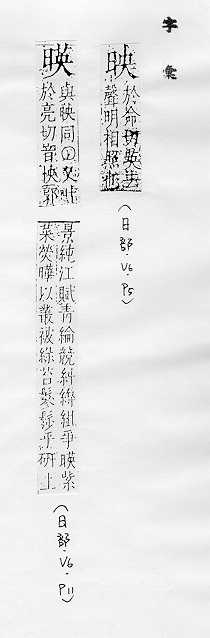 字彙
映
於命切英去
聲明相照也
(日部·V6·P5)
暎
與映同○又叶
於亮切音怏郭
景純江賦青綸競糾縟組爭暎紫
菜熒曄以叢被綠苔鬖髿乎研上
(日部·V6·P11)